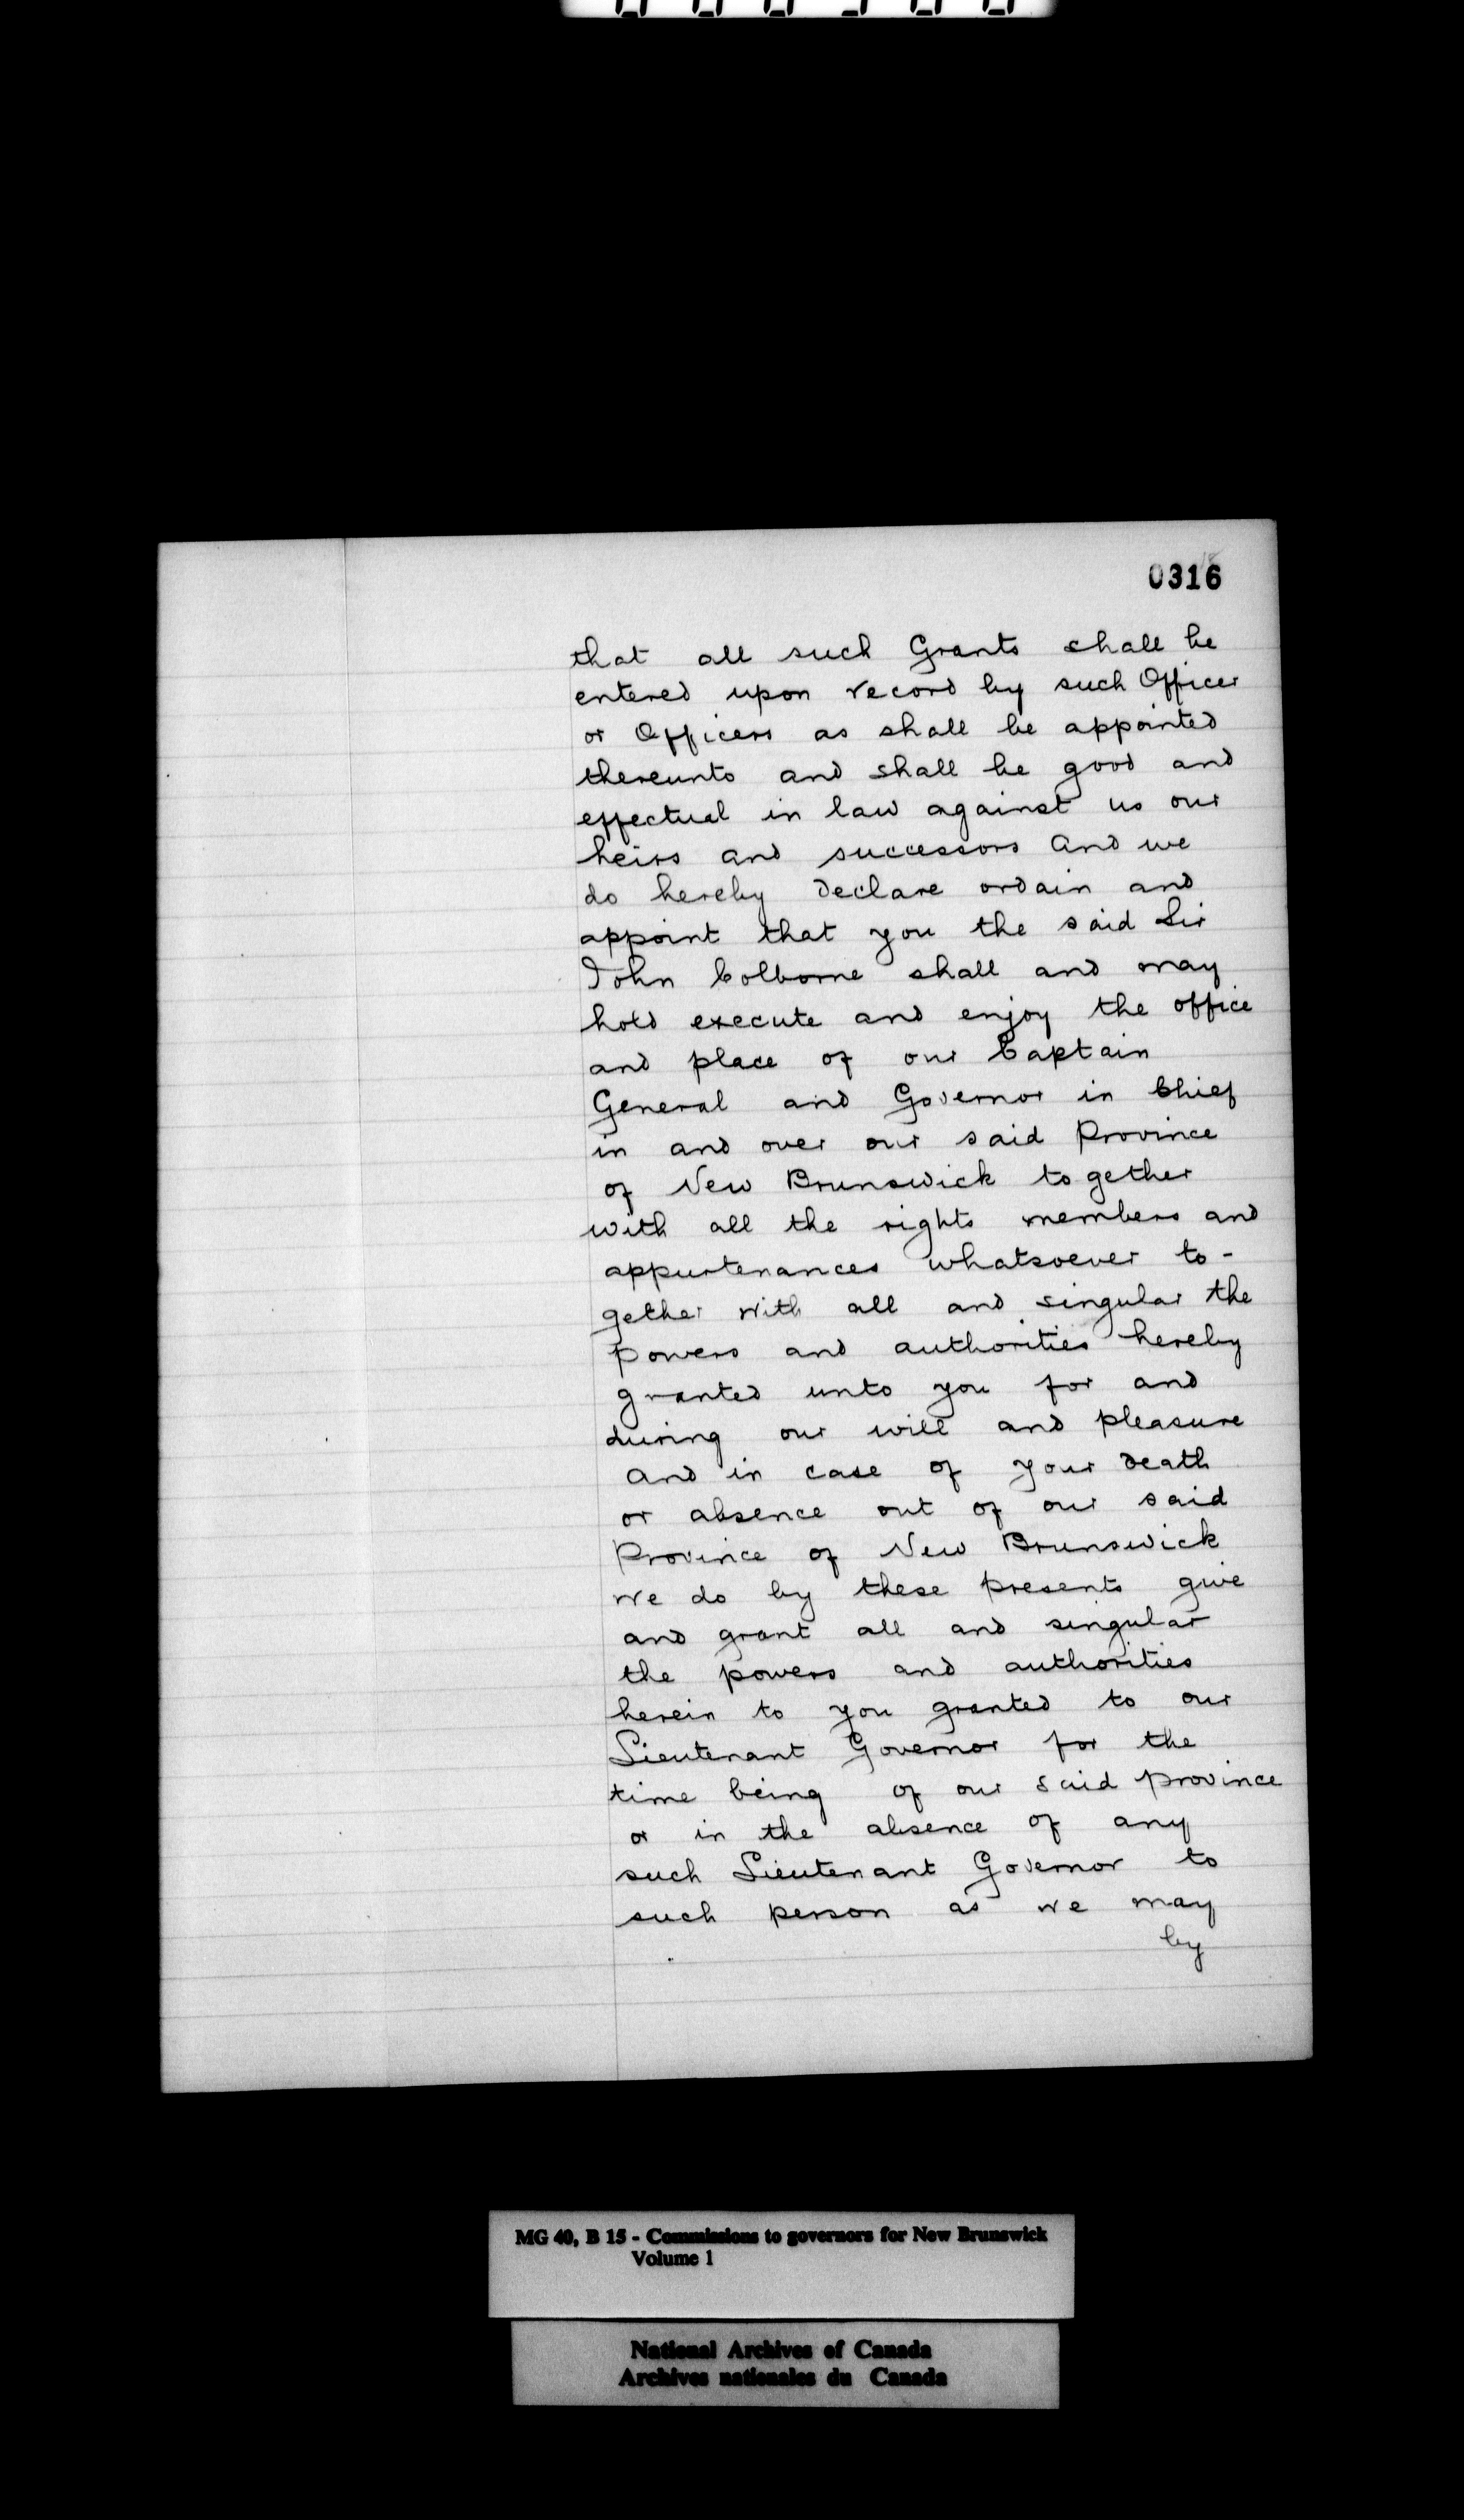 0316
that all such Grants shall be
entered upon record by such Officer
or Officers as shall be appointed
thereunto and shall be good and
effectual in law against us our
heirs and successors And we
do hereby declare ordain and
appoint that you the said Sir
John Colborne shall and may
hold execute and enjoy the office
and place of our Captain
General and Governor in Chief
in and over our said Province
of New Brunswick together
with all the rights members and
appurtenances whatsoever to-
gether with all and singular the
powers and authorities hereby
granted unto you for and
during our will and pleasure
And in case of your death
or absence out of our said
Province of New Brunswick
we do by these presents give
and grant all and singular
the powers and authorities
herein to you granted to our
Lieutenant Governor for the
time being of our said province
or in the absence of any
such Lieutenant Governor to
such person as we may
by
MG 40, B 15 - Commissions to governors for New Brunswick
Volume 1
National Archives of Canada
Archives nationales du Canada